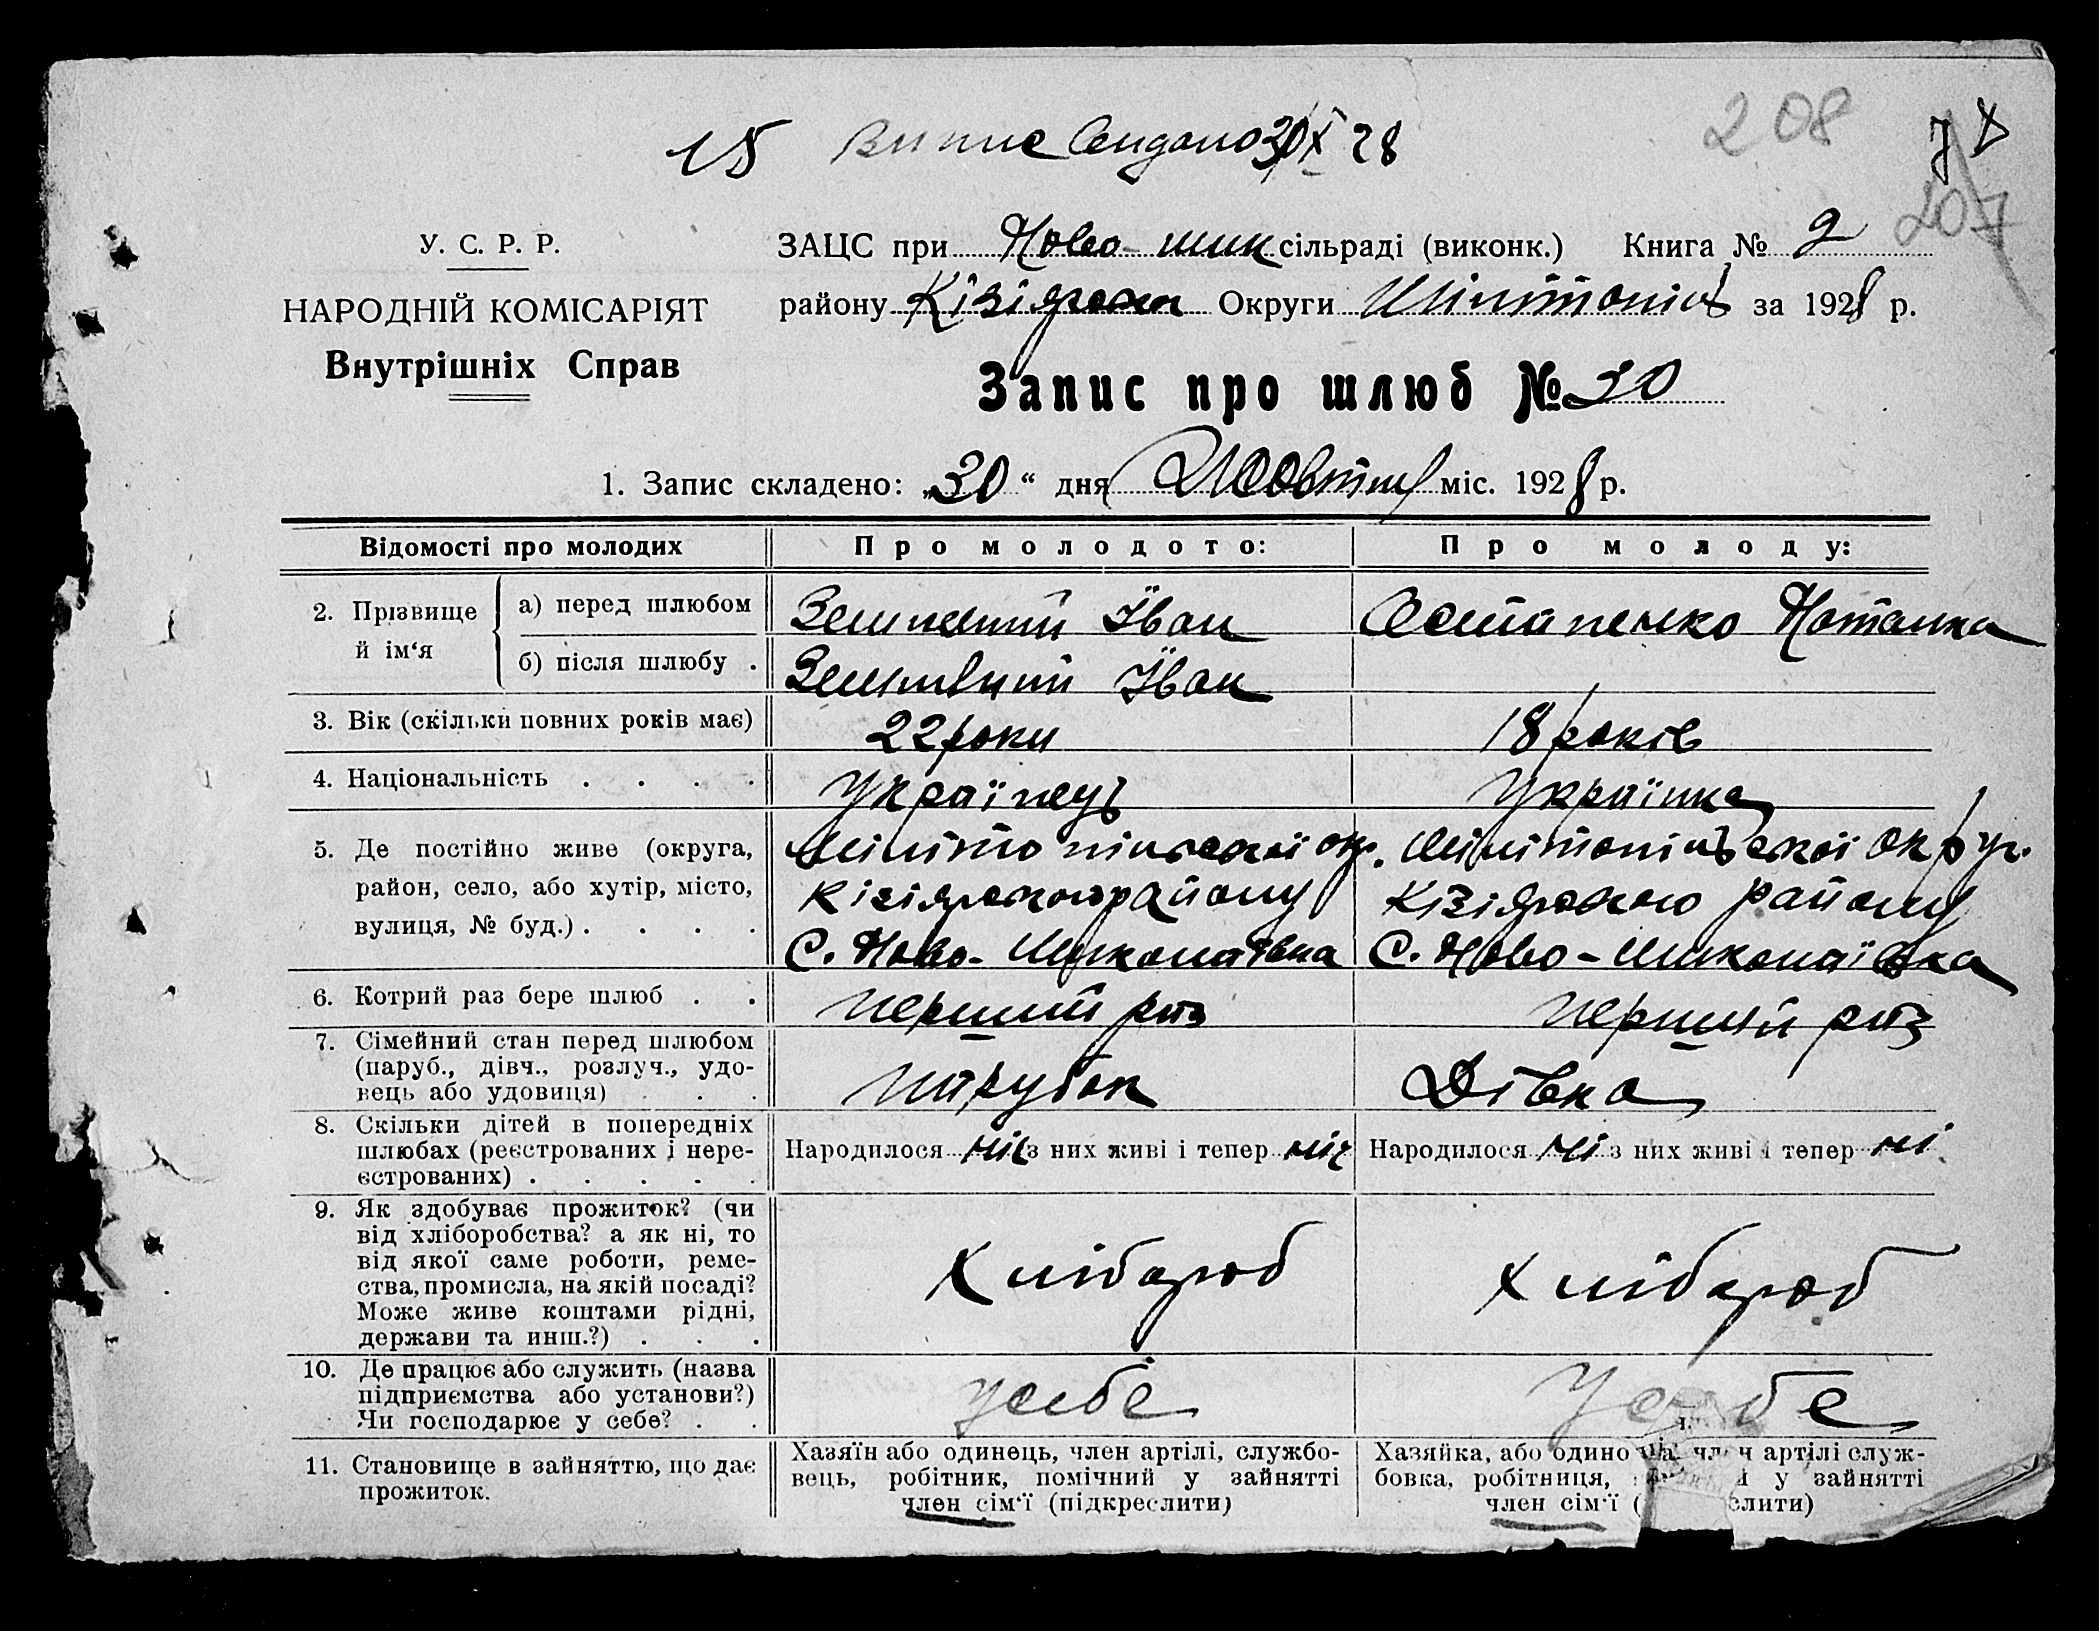 15 Випис видано 30/X 28
208
207
У. С. Р. Р.
НАРОДНІЙ КОМІСАРІЯТ
Внутрішніх Справ
ЗАЦС при Ново-мик сільраді (виконк.) Книга № 2
району Кізіярськ Округи за 1928 р.
Запис про шлюб № 30
1. Запис складено: „30“ дня Жовтня міс. 1928 р.
Відомості про молодих
Про молодого:
Про молоду:
2. Прізвище й ім‘я
а) перед шлюбом
Іван
Остапенко Наталка
б) після шлюбу .
Іван
3. Вік (скільки повних років має)
22 роки
18 років
4. Національність . . . .
Українець
Українка
5. Де постійно живе (округа,
район, село, або хутір, місто,
вулиця, № буд.) . . . .
Мілітопільської окр.
Кізіярського району
С. Ново-Миколаївка
Мілітопільської округ.
Кізіярського району
С. Ново-Миколаївка
6. Котрий раз бере шлюб . .
перший раз
перший раз
7. Сімейний стан перед шлюбом
(паруб., дівч., розлуч., удо-
вець або удовиця) . . .
парубок
Дівка
8. Скільки дітей в попередніх
шлюбах (реєстрованих і нере-
єстрованих) . . . . .
Народилося з них живі і тепер
Народилося ні з них живі і тепер ні
9. Як здобуває прожиток? (чи
від хліборобства? а як ні, то
від якої саме роботи, реме-
ства, промисла, на якій посаді?
Може живе коштами рідні,
держави та инш.?) . . .
Хлібороб
Хлібороб
10. Де працює або служить (назва
підприємства або установи?)
Чи господарює у себе? . .
у себе
У себе
11. Становище в зайняттю, що дає
прожиток.
Хазяїн або одинець, член артілі, службо-
вець, робітник, помічний у зайнятті
член сім‘ї (підкреслити)
Хазяйка, або одино член артілі служ-
бовка, робітниця, у зайнятті
член сім‘ї ( слити)